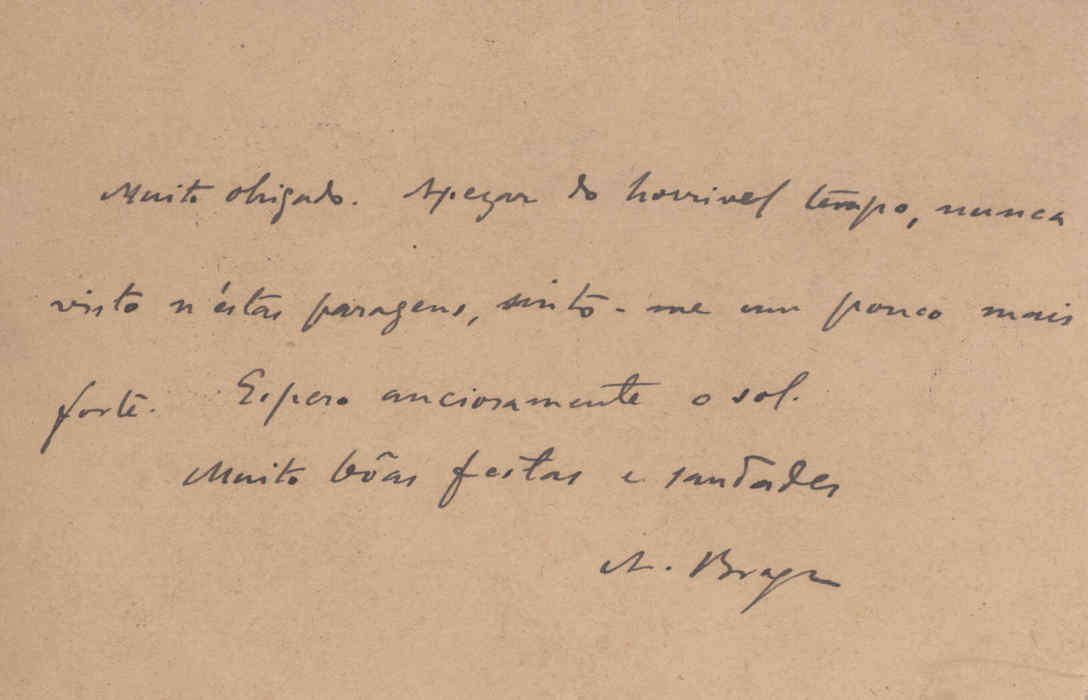 Muito obrigado. Apezar do horrivel tempo, nunca
visto n'éstas paragens, sinto-me um pouco mais
forte. Espero anciosamente o sol.
Muito bôas festas e saudades
A. Braga